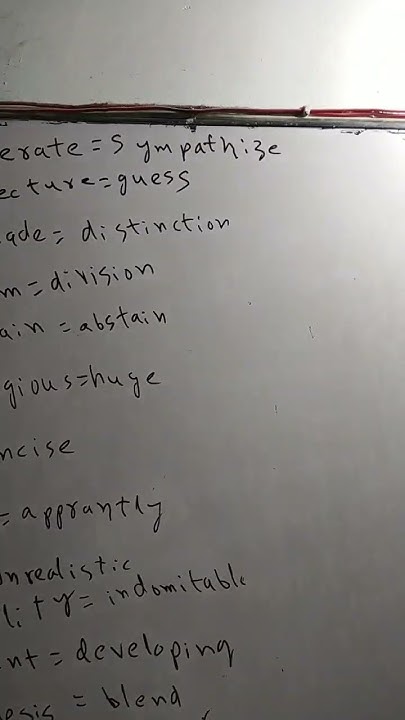 erate = Sympathize
ecture = guess
ade = distinction
m = division
ain = abstain
gious = huge
ncise
= apprantly
nrealistic
lity = indomitable
nt = developing
esis = blend